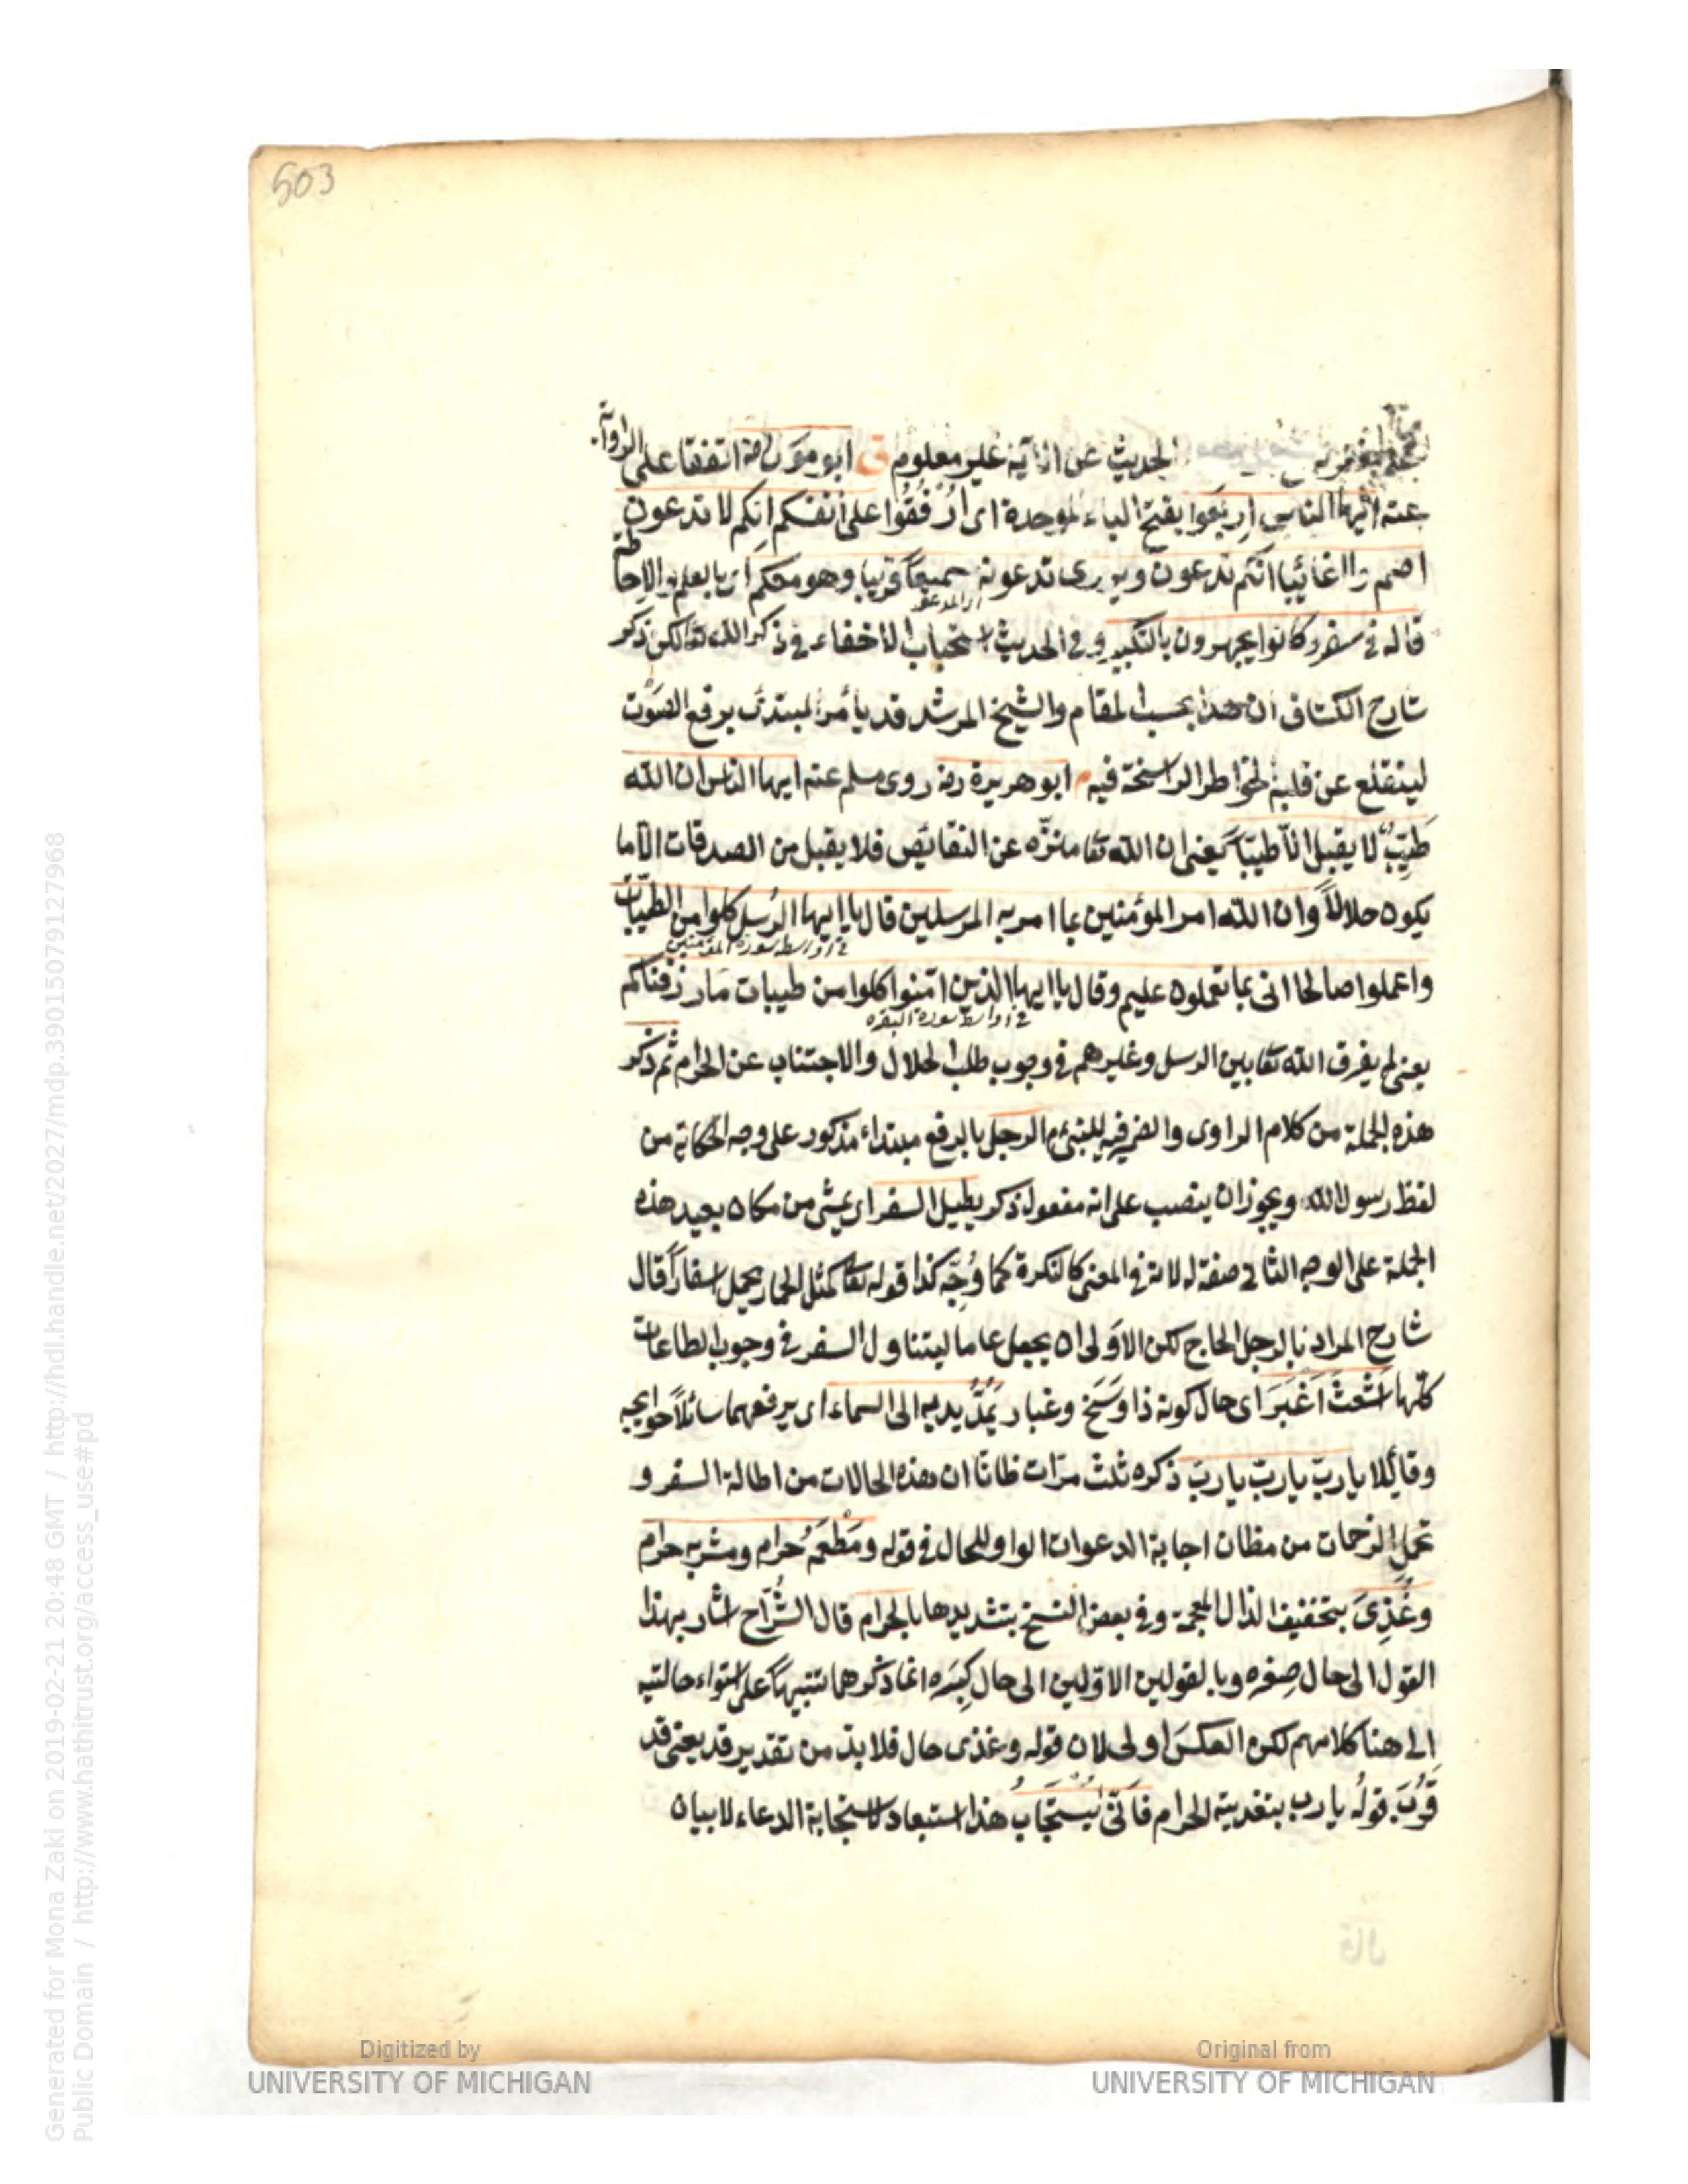 503
الحديث عن اذاية غير معلوم ق ابو موسى رضه اتفقا على الرواية
عنه ايها الناس اربعوا بفتح الباء الموحدة اى ارفقوا على انفسكم انكم لا تدعون
اصم ولا غائبا انكم تدعون ويروى تدعونه سميعا قريبا وهو معكم اى بالعلم والاحاطة
اى المدعو
قاله فى سفر وكانوا يجهرون بالتكبير وفى الحديث استحباب الاخفاء فى ذكر الله تعا لكن ذكر
شارح الكشاف ان هذا بحسب المقام والشيخ المرشد قد يأمر المبتدئ برفع الصوت
لينقلع عن قلبه الخواطر الراسخة فيه م ابو هريرة رضه روى مسلم عنه ايها الناس ان الله
طَيِّبٌ لا يقبل الّا طيبًا يعنى ان الله تعا منزّه عن النقائص فلا يقبل من الصدقات الا ما
يكون حلالاً وان الله امر المؤمنين بما امر به المرسلين قال يا ايها الرسل كلوا من الطيبات
فى اواسط سورة المؤمنين
واعملوا صالحا انى بما تعملون عليم وقال يا ايها الذين امنوا كلوا من طيبات ما رزقناكم
فى اواسط سورة البقره
يعنى لم يفرق الله تعا بين الرسل وغيرهم فى وجوب طلب الحلال والاجتناب عن الحرام ثم ذكر
هذه الجملة من كلام الراوى والضمير فيه للنبى م الرجل بالرفع مبتداء مذكور على وجه الحكاية من
لفظ رسول الله ويجوز ان ينصب على انه مفعول ذكر يطيل السفر اى يمشى من مكان بعيد هذه
الجملة على الوجه الثانى صفة له لانه فى المعنى كالنكرة كما وُجِّه كذا قوله تعا كمثل الحمار يحمل اسفارًا قال
شارح المراد بالرجل الحاج لكن الاولى ان يجعل عاما ليتناول السفر فى وجوب الطاعات
كلها اشعثَ اَغْبَرَ اى حال كونه ذا وَسَخ وغبار يَمُدُّ يديه الى السماء اى يرفعهما سائلاً حوايجه
وقائلا يا ربّ يا ربّ يا ربّ ذكره ثلث مرّات ظانّا ان هذه الحالات من اطالة السفر و
تحمل الزحمات من مظان اجابة الدعوات الواو للحال فى قوله ومَطْعَمُه حرام ومشربه حرام
وغُذِىَ بتخفيف الذال المعجمة وفى بعض النسخ بتشديدها بالحرام قال الشُّرّاح اشار بهذا
القول الى حال صِغَره وبالقولين الاوّلين الى حال كِبَره انما ذكرهما تنبيهًا على استواء حالتيه
الى هنا كلامهم لكن العكس اولى لان قوله وغذى حال فلا بدّ من تقدير قد يعنى قد
قَرُبَ قولُه يا رب بتغدية الحرام فاَنّى يُسْتَجَابُ هذا استبعاد لاستجابة الدعاء لا بيان
Generated for Mona Zaki on 2019-02-21 20:48 GMT / http://hdl.handle.net/2027/mdp.39015079127968
Public Domain / http://www.hathitrust.org/access_use#pd
Digitized by
UNIVERSITY OF MICHIGAN
Original from
UNIVERSITY OF MICHIGAN